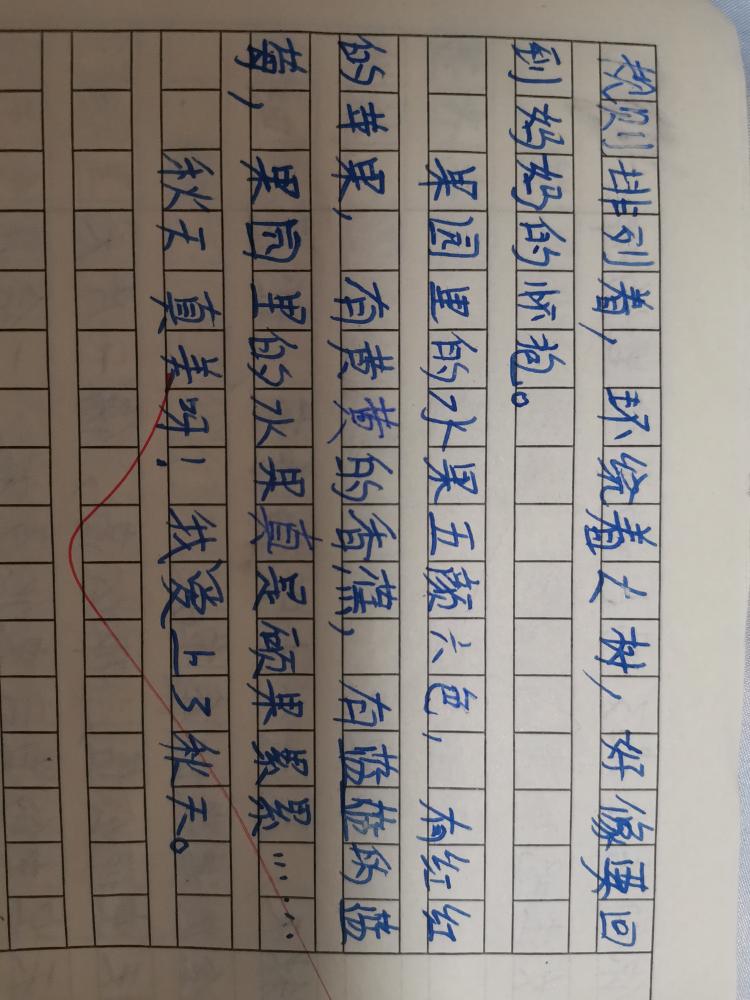 规则排列着，环绕着大树，好像要回
到妈妈的怀抱。
果园里的水果五颜六色，有红红
的苹果，有黄黄的香蕉，有蓝蓝的蓝
莓，果园里的水果真是硕果累累……
秋天真美呀！我爱上了秋天。